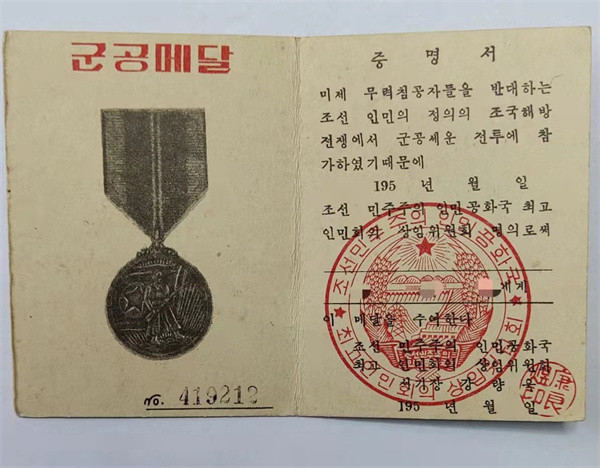 군공메달
No. 419212
증 명 서
미제 무력침공자들을 반대하는
조선 인민의 정의의 조국해방
전쟁에서 군공세운 전투에 참
가하였기때문에
195 년 월 일
조선 민주주의 인민공화국 최고
인민회의 상임위원회 명의로써
에게
이 메달을 수여한다
조선 민주주의 인민공화국
최고 인민회의 상임위원회
서기장 강 량 욱
195 년 월 일
조선민주주의인민공화국
최고인민회의 상임위원회
康良煜印